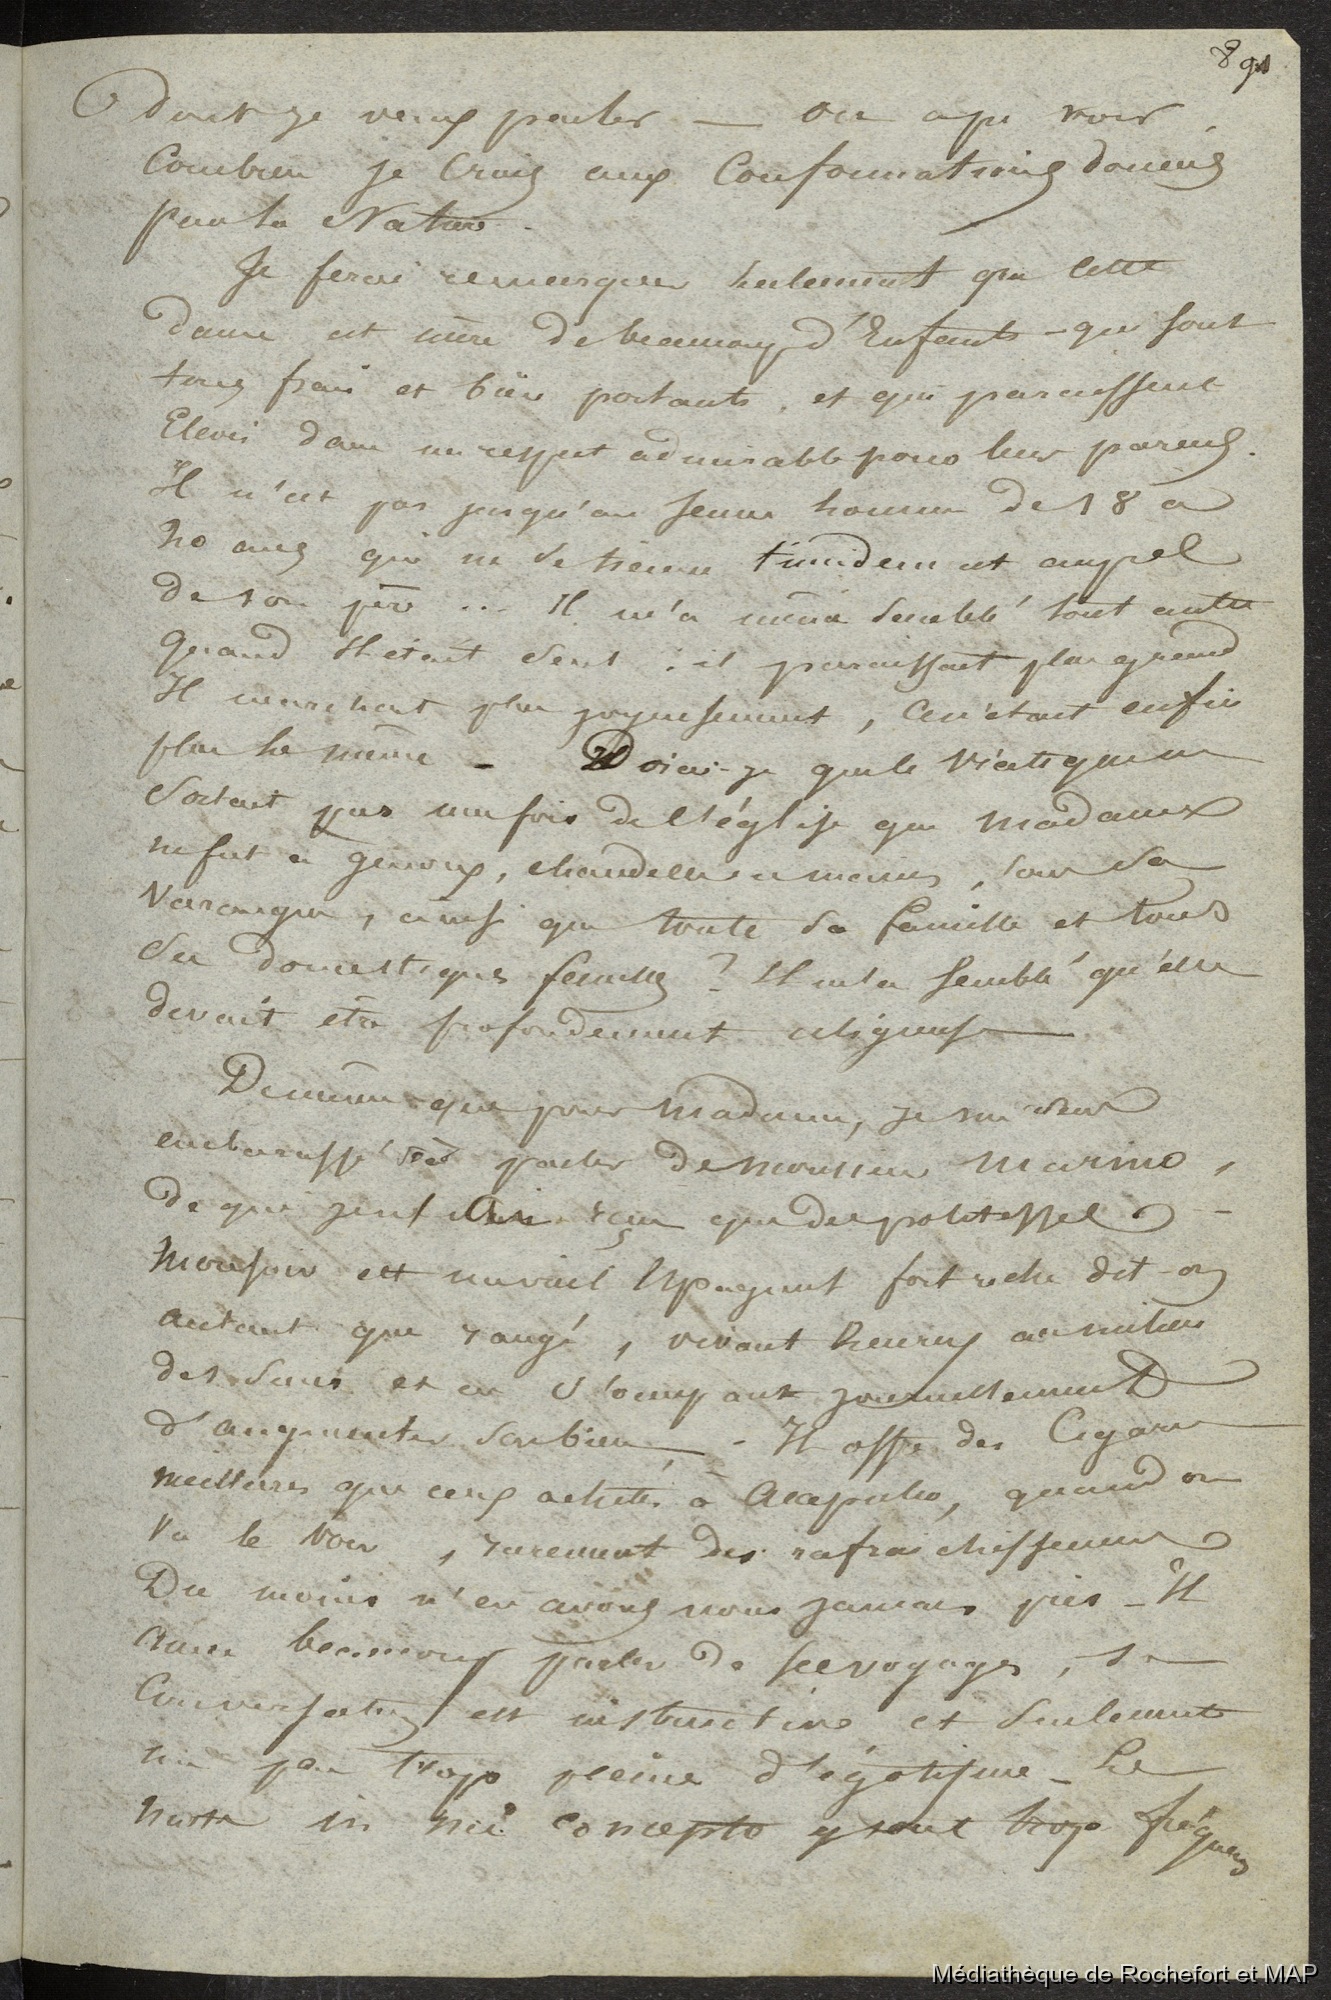 891
dont je veux parler — on a pu voir,
Combien je Crois aux Conformations données
par la Nature.
Je ferai remarquer seulement que cette
dame est mère de beaucoup d'Enfants - qui sont
tous frais et bien portants, et qui paraissent
Elevés dans un respect admirable pour leurs parens.
Il n'est pas jusqu'au jeune homme de 18 à
20 ans qui ne se tienne timidement
de son père ... Il m'a même semblé tout autre
Quand Il était seul : il paraissait plus grand
Il marchait plus joyeusement, Ce n'était enfin
plus le même - Dirai-je que le Viatique ne
sortait pas une fois de l'église que Madame
ne fut à genoux, chandelle à mains, sous sa
Varangue, ainsi que toute sa famille et tous
ses domestiques femelles ? Il m'a semblé qu'elle
devait être profondément religieuse —
De même que pour Madame, je me veux
embarassé de parler de monsieur Marino,
de qui je n'ai reçu que des politesses -
Monsieur est un vieil Espagnol fort riche dit-on
autant que rangé, vivant heureux au milieu
des siens et en s'occupant journellement
d'augmenter son bien - Il offre des Cigares
meilleures que ceux achetés à Acapulco, quand on
va le voir, rarement des rafraichissemens
Du moins n'en avons nous jamais pris - Il
aime beaucoup parler de ses voyages, sa
Conversation est instructive et seulement
un peu trop pleine d'égotisme - Le
in mi concepto y sont trop fréquens
Médiathèque de Rochefort et MAP